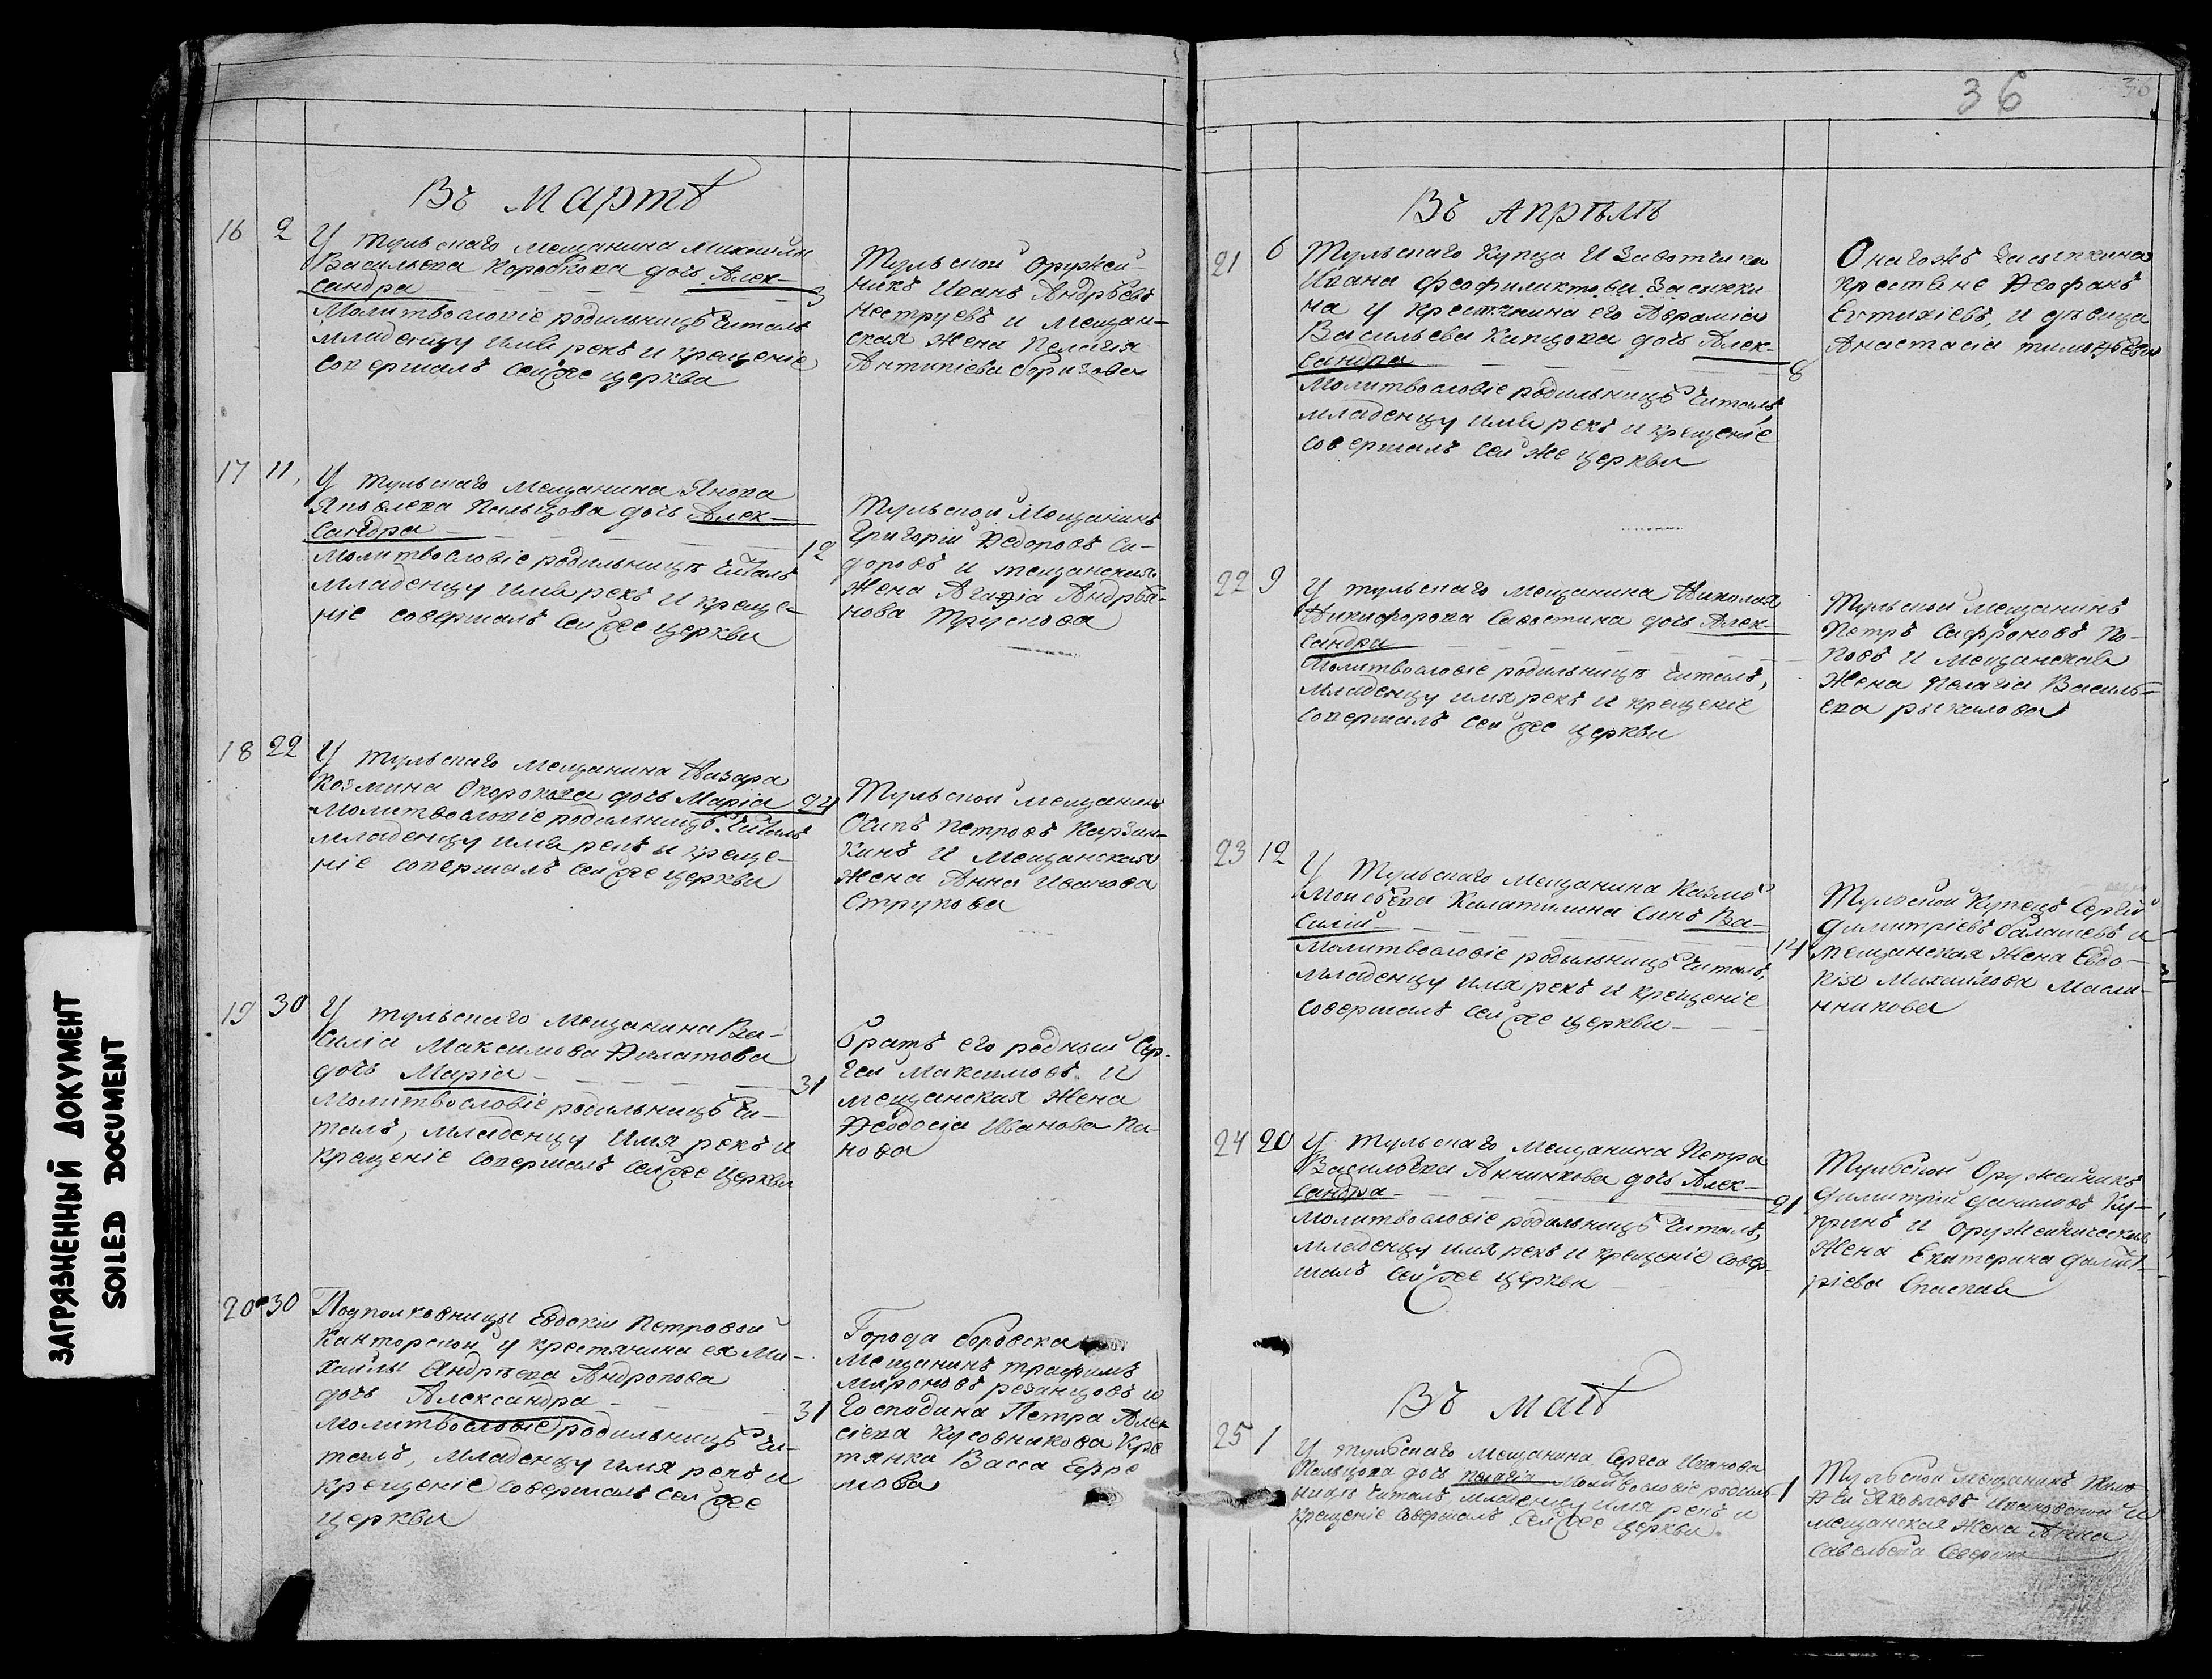 ЗАГРЯЗНЕННЫЙ ДОКУМЕНТ
SOILED DOCUMENT
Въ Мартѣ
16 2 У тульскаго мещанина Михайлы
Васильева Коробкова дочь Алек-
сандра 3
Молитвословіе родильницѣ читалъ
младенцу имя рекъ и крещеніе
совершалъ сей же церкви
Тульской оружей-
никъ Иванъ Андрѣевъ
и мещан-
ская жена Пелагія
Антипіева
17 11 У тульскаго мещанина Якова
Яковлева Пальцова дочь Алек-
сандра 12
Молитвословіе родильницѣ читалъ
младенцу имя рекъ и креще-
ніе совершалъ сей же церкви
Тульской мещанинъ
Григорій Ѳедоровъ Си-
доровъ и мещанская
жена Агапіа Андрѣя-
нова Трускова
18 22 У тульскаго мещанина Назара
Козмина дочь Марія 24
Молитвословіе родильницѣ читалъ
младенцу имя рекъ и креще-
ніе совершалъ сей же церкви
Тульской мещанинъ
Осипъ Петровъ Карзин-
кинъ и мещанская
жена Анна Иванова
Струкова
19 30 У тульскаго мещанина Ва-
силіа Максимова Филатова
дочь Маріа 31
Молитвословіе родильницѣ чи-
талъ, младенцу имя рекъ и
крещеніе совершалъ сей же церкви
братъ его родный Сер-
гей Максимовъ и
мещанская жена
Ѳеодосіа Иванова Па-
нова
20 30 Подполковницы Евдокіи Петровой
Канторской у крестянина ея Ми-
хайлы Андрѣева Андронова
дочь Александра 31
Молитвословіе родильницѣ чи-
талъ, младенцу имя рекъ и
крещеніе совершалъ сей же
церкви
Города Боровска
мещанинъ Трафимъ
Мироновъ Резанцовъ и
Господина Петра Алек
сіева Кусовникова Кре
тянка Васса Ефре
мова
36
36
Въ Апрѣлѣ
21 6 Тульскаго купца и заводчика
Ивана Феофилактова Засыпки
на у крестянина его Аврамиа
Васильева дочь Алек-
сандра 8
Молитвословіе родильницѣ читалъ
младенцу имя рекъ и крещеніе
совершалъ сей же церкви
Онагожъ Засыпкина
крестяне Ѳеофанъ
Евтихіевъ, и дѣвица
Анастасіа
22 9 У тульскаго мещанина Николая
Никифорова Савостина дочь Алек-
сандра
Молитвословіе родильницѣ читалъ,
младенцу имя рекъ и крещеніе
совершалъ сей же церкви
Тульской мещанинъ
Петръ Сафроновъ По-
повъ и мещанская
жена Пелагіа Василь-
ева Рыкалова
23 12 У тульскаго мещанина Казмы
Моисѣева Калатилина сынъ Ва-
силій 14
Молитвословіе родильницѣ читалъ,
младенцу имя рекъ и крещеніе
совершалъ сей же церкви
Тульской купецъ Сергѣй
Димитріевъ Балашевъ и
мещанская жена Евдо-
кія Михайлова Масля-
нникова
24 20 У тульскаго мещанина Петра
Васильева Анникова дочь Алек-
сандра 21
Молитвословіе родильницѣ читалъ,
младенцу имя рекъ и крещеніе совер-
шалъ сей же церкви
Тульской оружейникъ
Димитрій Даниловъ Ку-
принъ и оружейническая
жена Екатерина Димит-
ріева
Въ маіѣ
25 1 У тульскаго мещанина Сергеа Иванова
Пальцова дочь Пелагіа Молитвословіе родиль- 1
ницѣ читалъ, младенцу имя рекъ и
крещеніе совершалъ сей же церкви.
Тульской мещанинъ Тимо
ѳей Яковлевъ и
мещанская жена Анна
Савельева